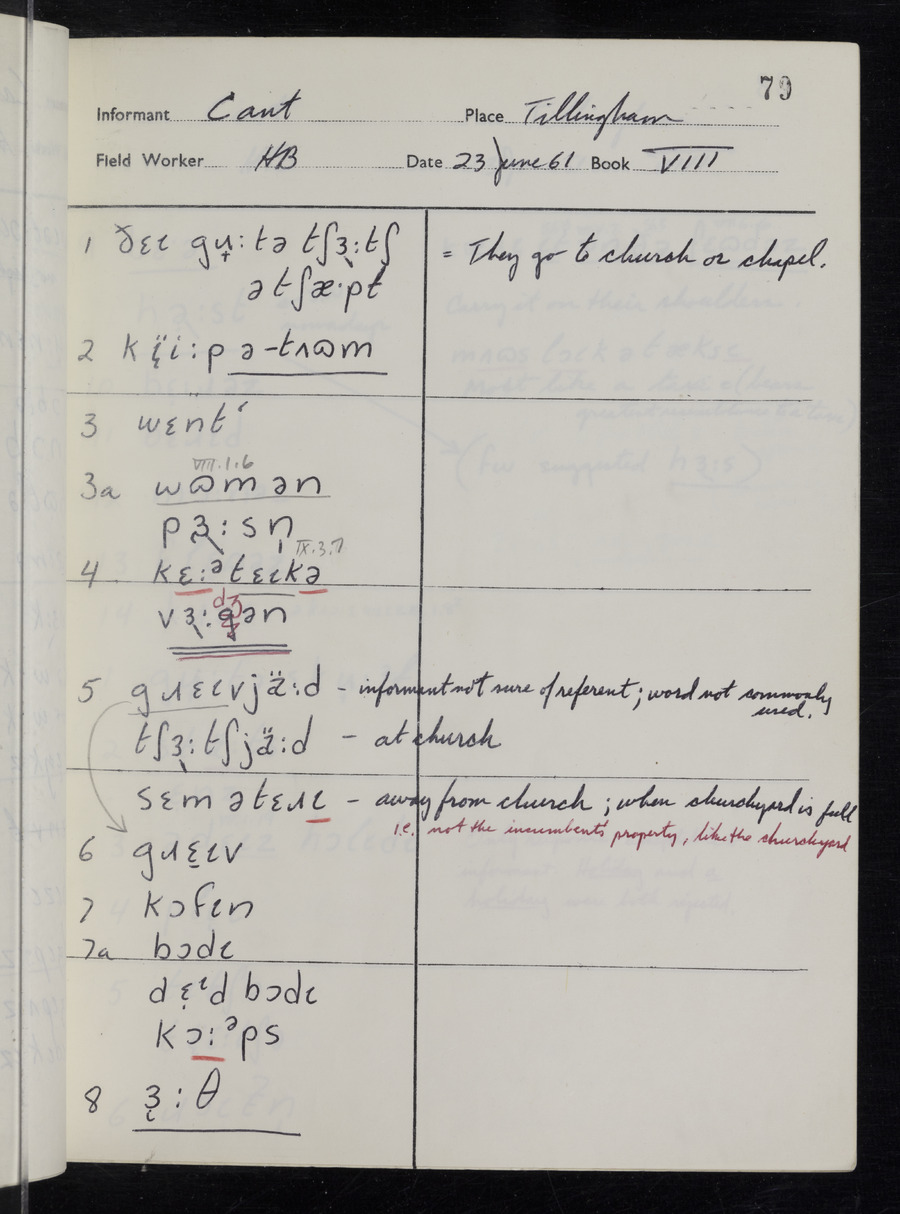 79
Informant Cant Place Tillingham
Field Worker HB Date 23 June 61 Book VIII
1 ðɛɩ gɹʉ̟: tə tʃɜ:tʃ = They go to church or chapel.
ə tʃæ·pt
2 kï̞i:p ə-tʌɷm
3 wɛnt
VIII.1.6
3a wɷmən
pɜ:sn̩
IX.3.7
4 kɛ:ᵊtɛɩkə
dʒ
vɜ:gən
5 gɹɛɩvjä:d – informant not sure of referent; word not commonly
used.
tʃɜ:tʃjä:d – at church
sɛmətɛɹɩ – away from church; when churchyard is full
i.e. not the incumbent's property, like the churchyard
6 gɹɛɩv
7 kɔfɩn
7a bɔdɩ
dɛᶥd bɔdɩ
kɔ:ᵊps
8 ɜ:θ